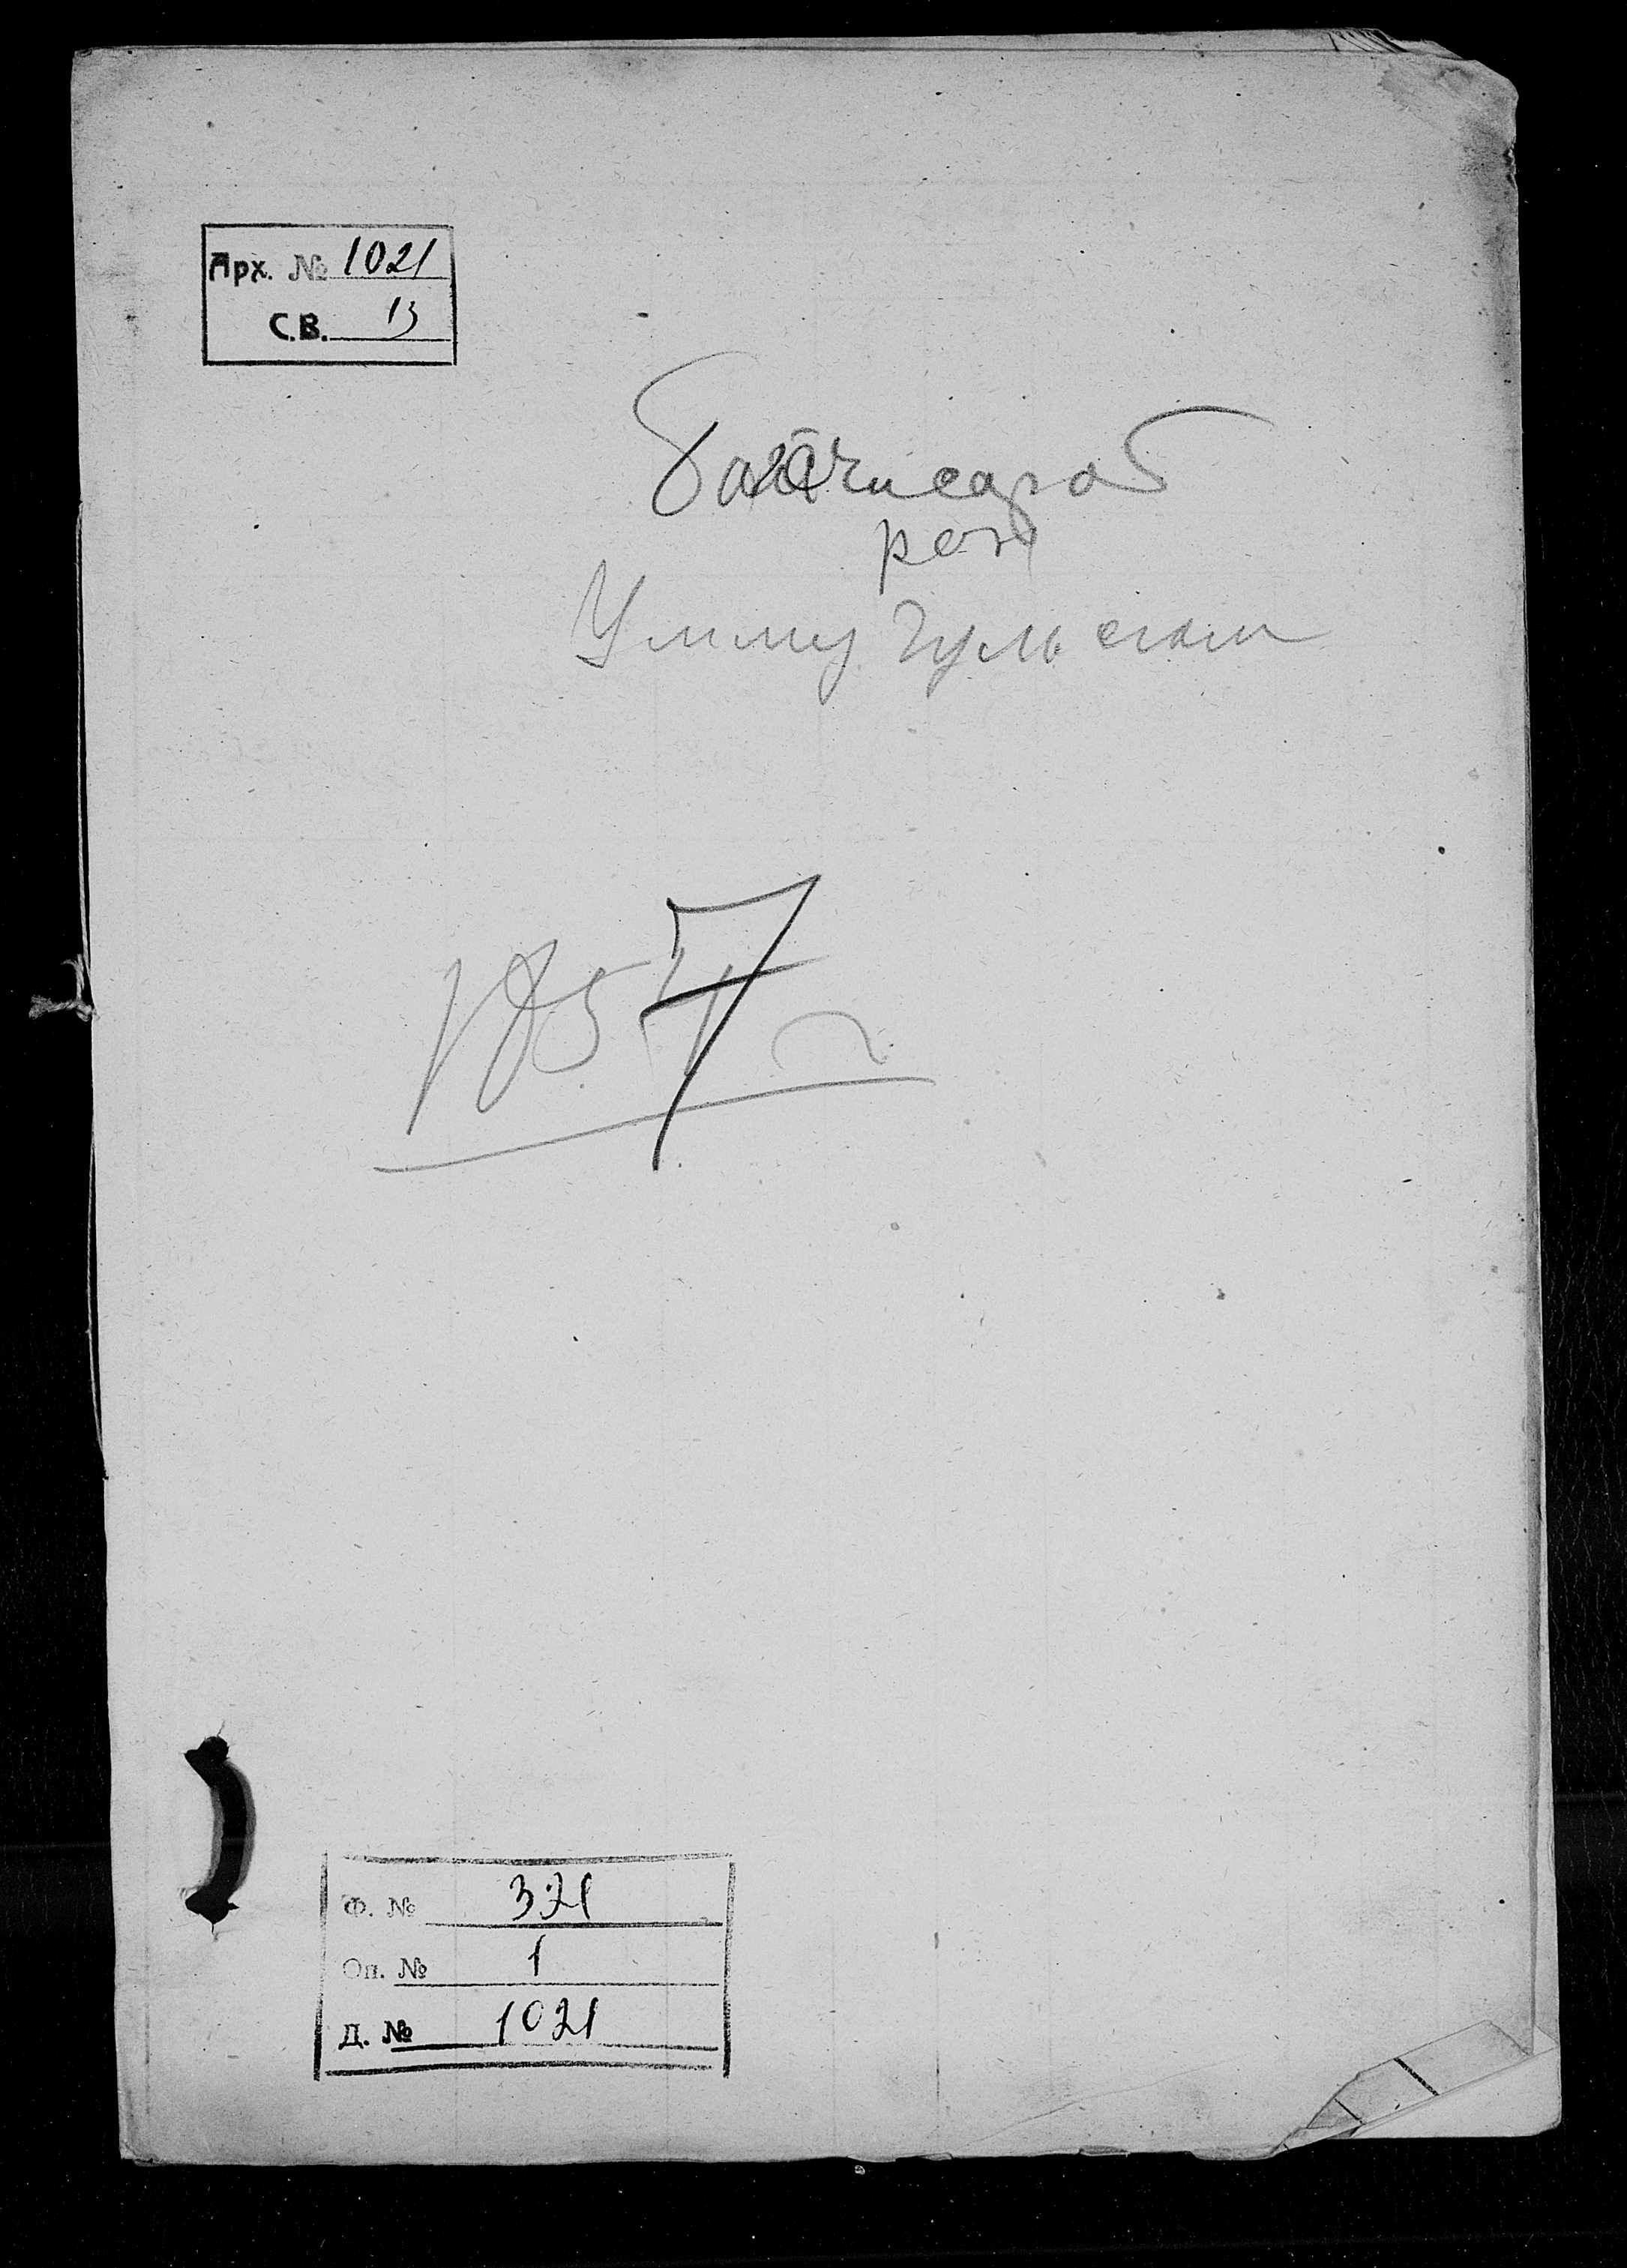 Арх. № 1021
С.В. 13
Бахчисараб
рон
Умму Гульская
185
Ф. № 321
Оп. № 1
Д. № 1021